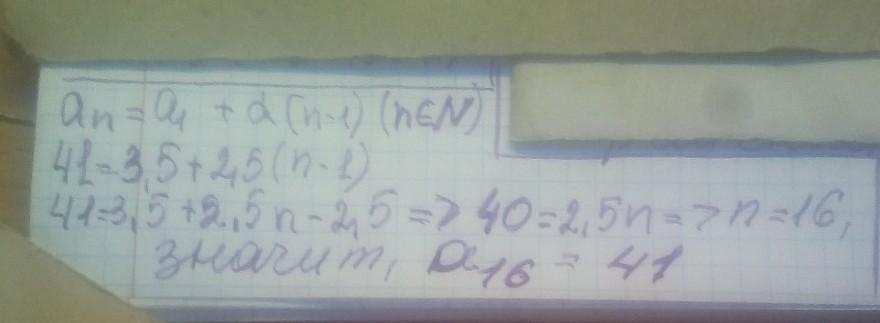 an = a1 + d (n-1) (n∈N)
41=3,5+2,5(n-1)
41=3,5+2,5n-2,5 => 40=2,5n => n=16,
значит, a16 = 41